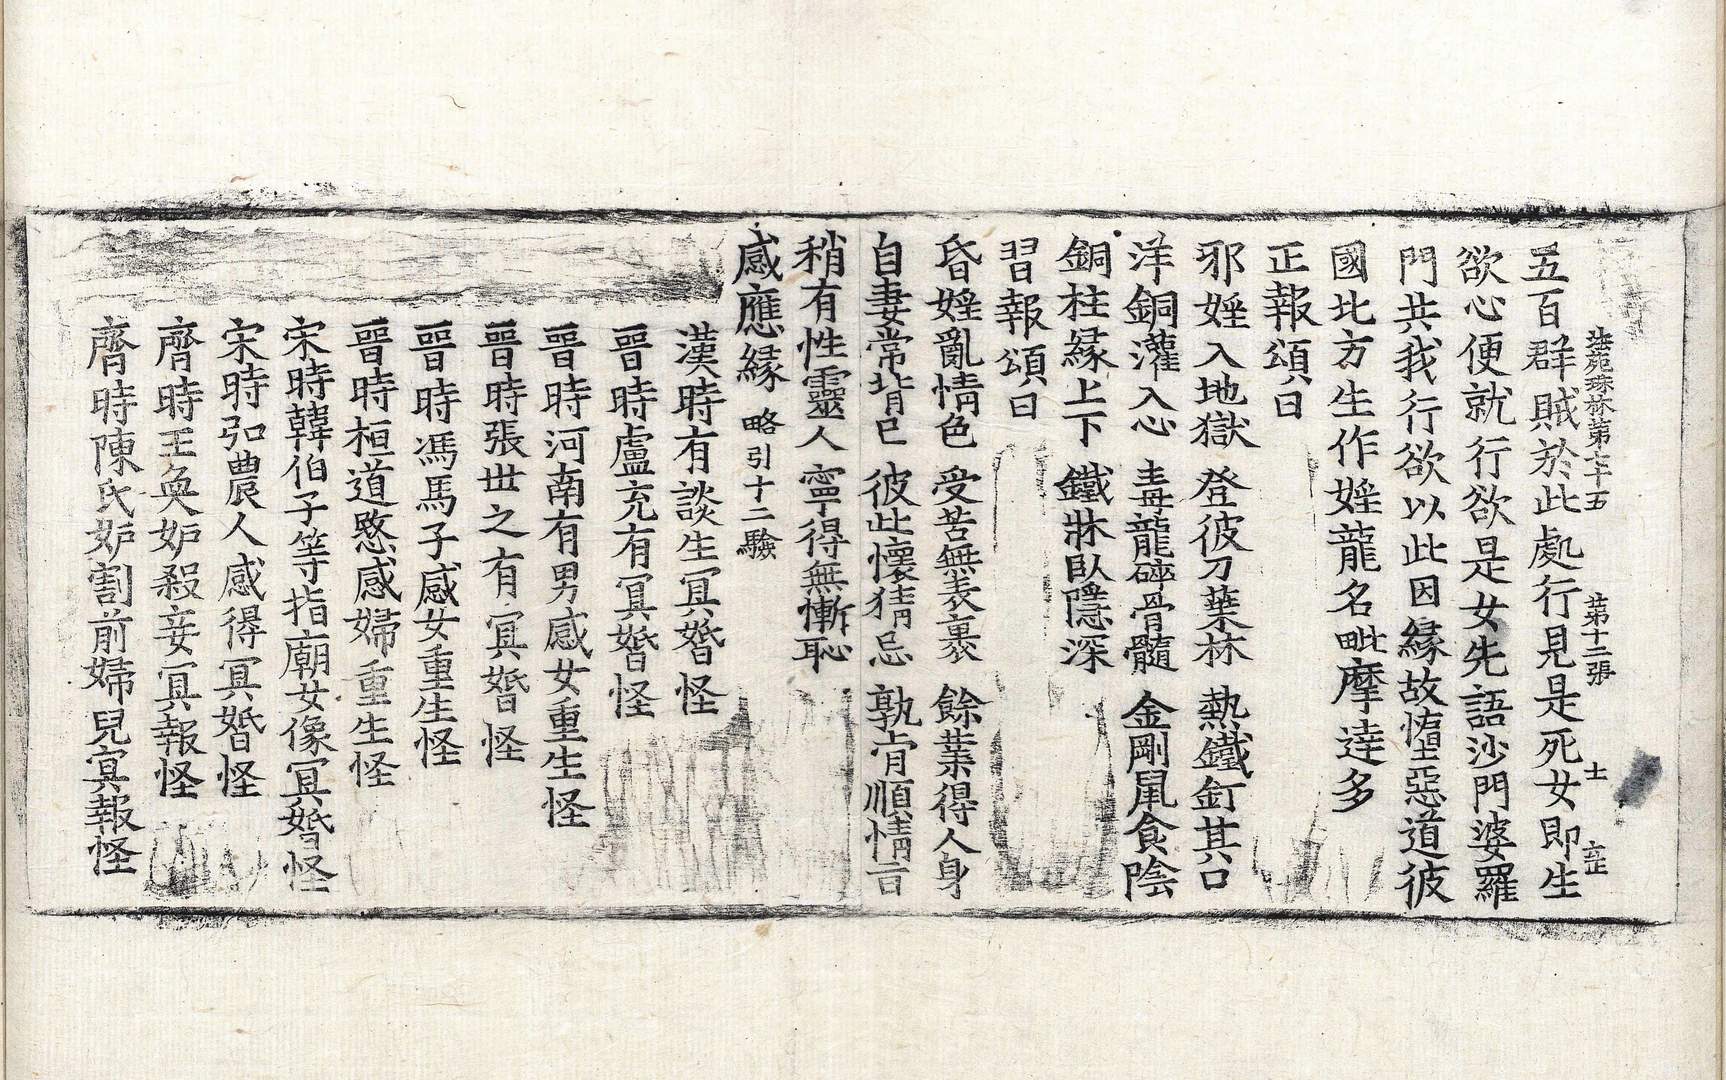 法苑珠林第七十五 第十二張 士
五百群賊於此處行見是死女即生
欲心便就行欲是女先語沙門婆羅
門共我行欲以此因緣故墮惡道彼
國北方生作婬龍名毗摩達多
正報頌曰
邪婬入地獄 登彼刀葉林 熱鐵釘其口
洋銅灌入心 毒龍碎骨髓 金剛鼠食陰
銅柱緣上下 鐵牀臥隱深
習報頌曰
昏婬亂情色 受苦無表裏 餘業得人身
自妻常背已 彼此懷猜忌 孰肯順情言
稍有性靈人 寧得無慚恥
感應緣 略引十二驗
漢時有談生冥婚怪
晉時盧充有冥婚怪
晉時河南有男感女重生怪
晉時張世之有冥婚怪
晉時馮馬子感女重生怪
晉時桓道愍感婦重生怪
宋時韓伯子等指廟女像冥婚怪
宋時弘農人感得冥婚怪
齊時王奐妒殺妾冥報怪
齊時陳氏妒割前婦兒冥報怪